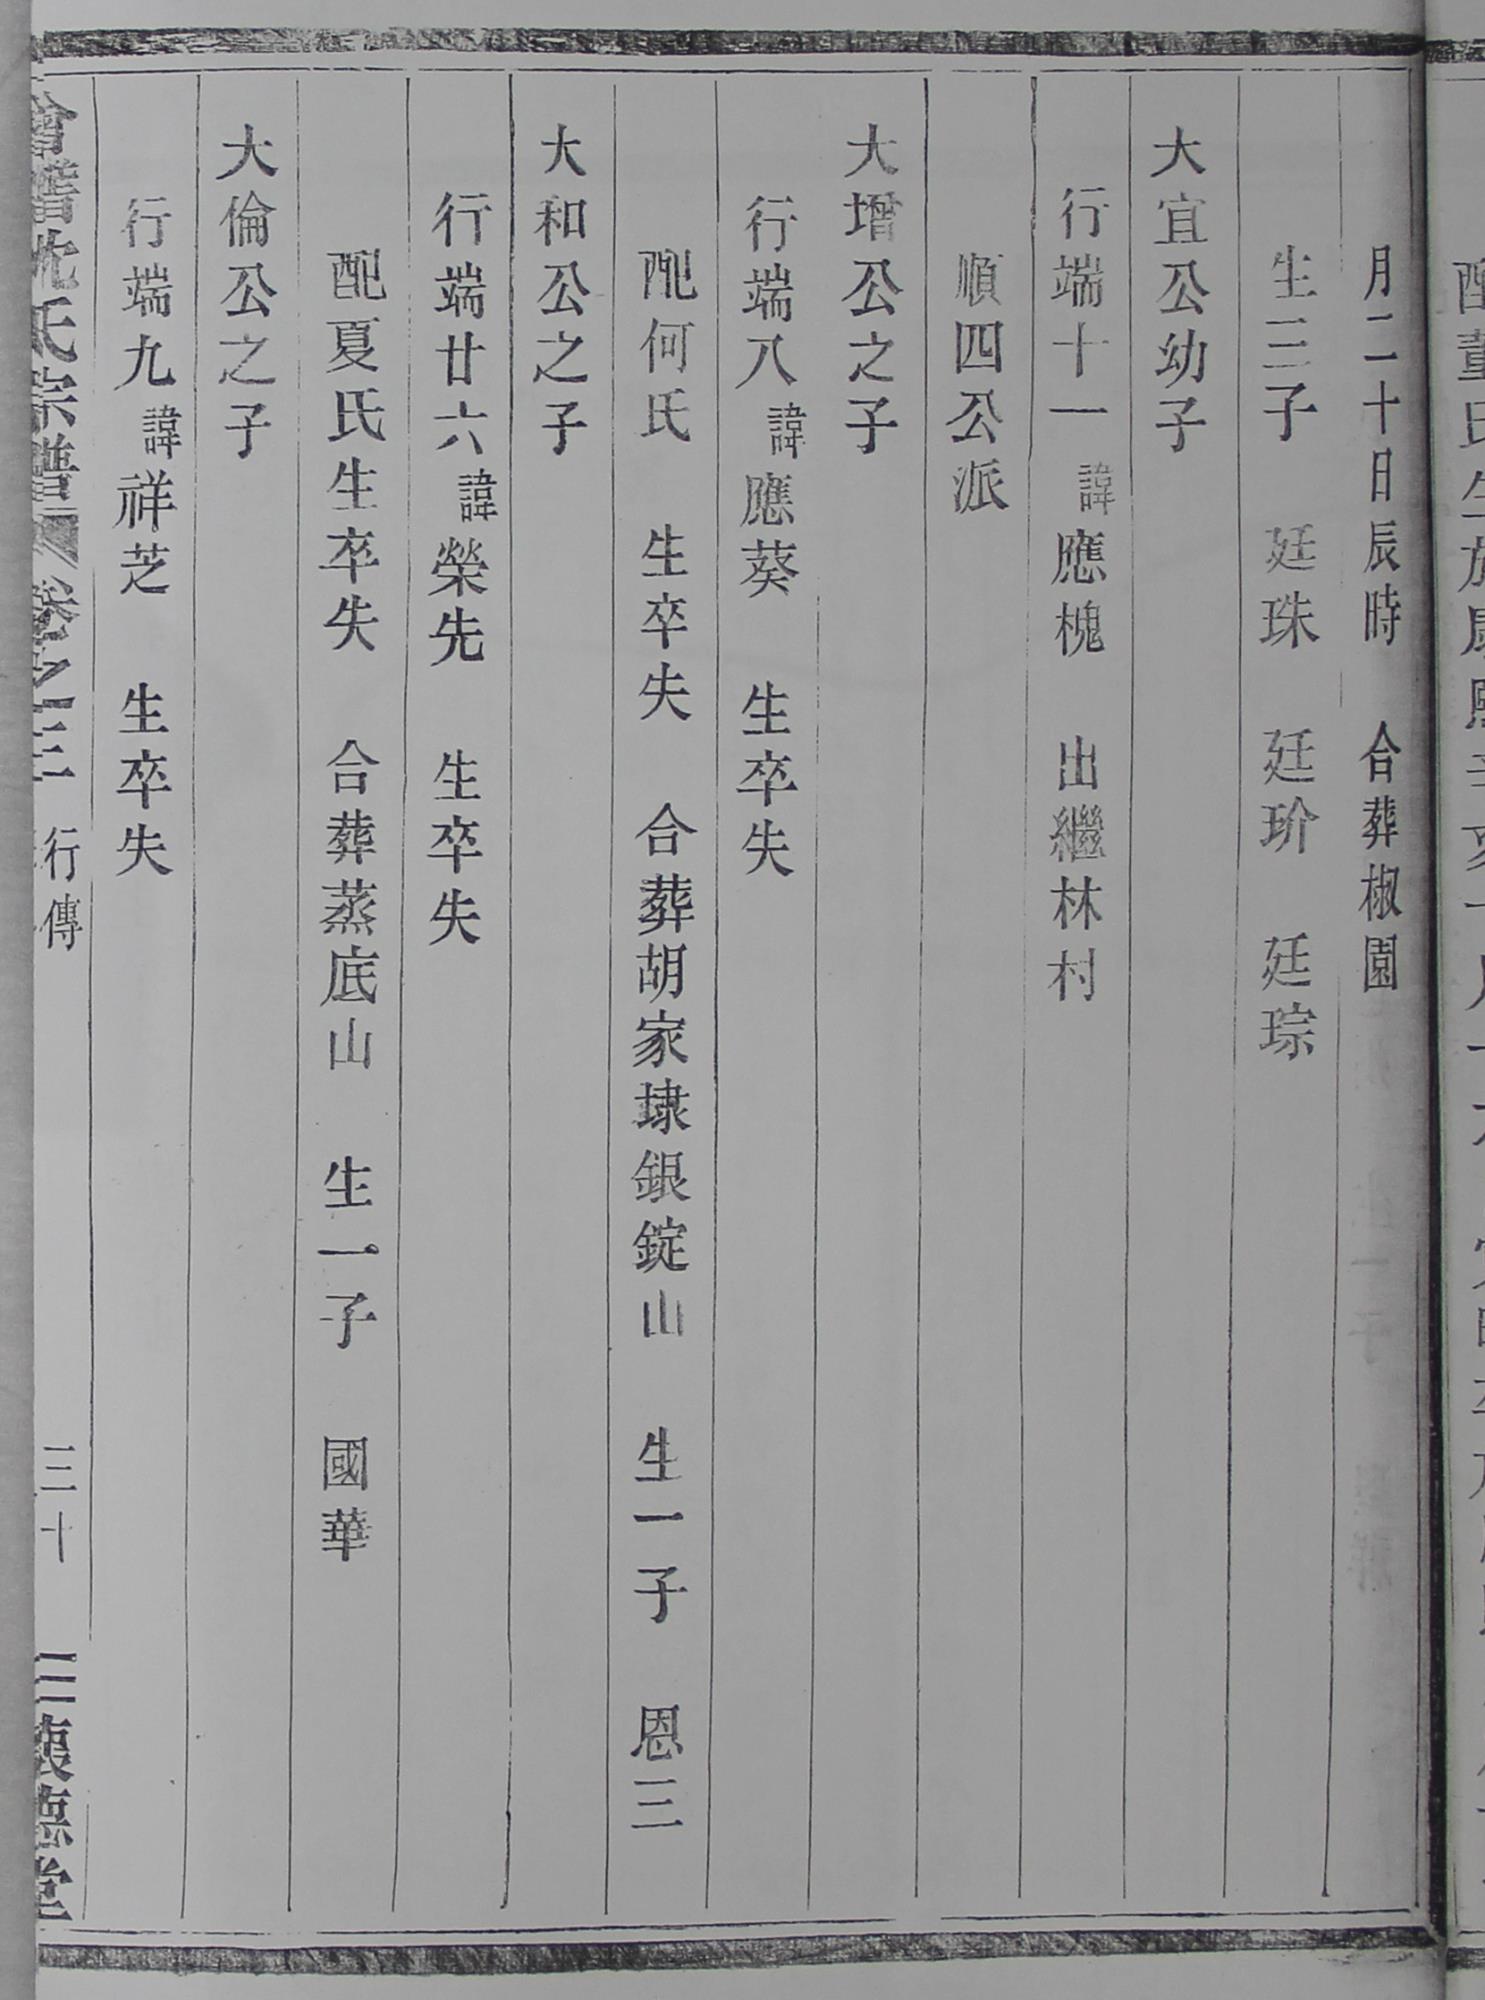 月二十日辰時　合葬椒園
生三子　廷珠　廷玠　廷琮
大宜公幼子
行端十一諱應槐　出繼林村
順四公派
大增公之子
行端八諱應葵　生卒失
配何氏　生卒失　合葬胡家埭銀錠山　生一子　恩三
大和公之子
行端廿六諱榮先　生卒失
配夏氏生卒失　合葬蒸底山　生一子　國華
大倫公之子
行端九諱祥芝　生卒失
會稽沈氏宗譜　卷之三　行傳　三十